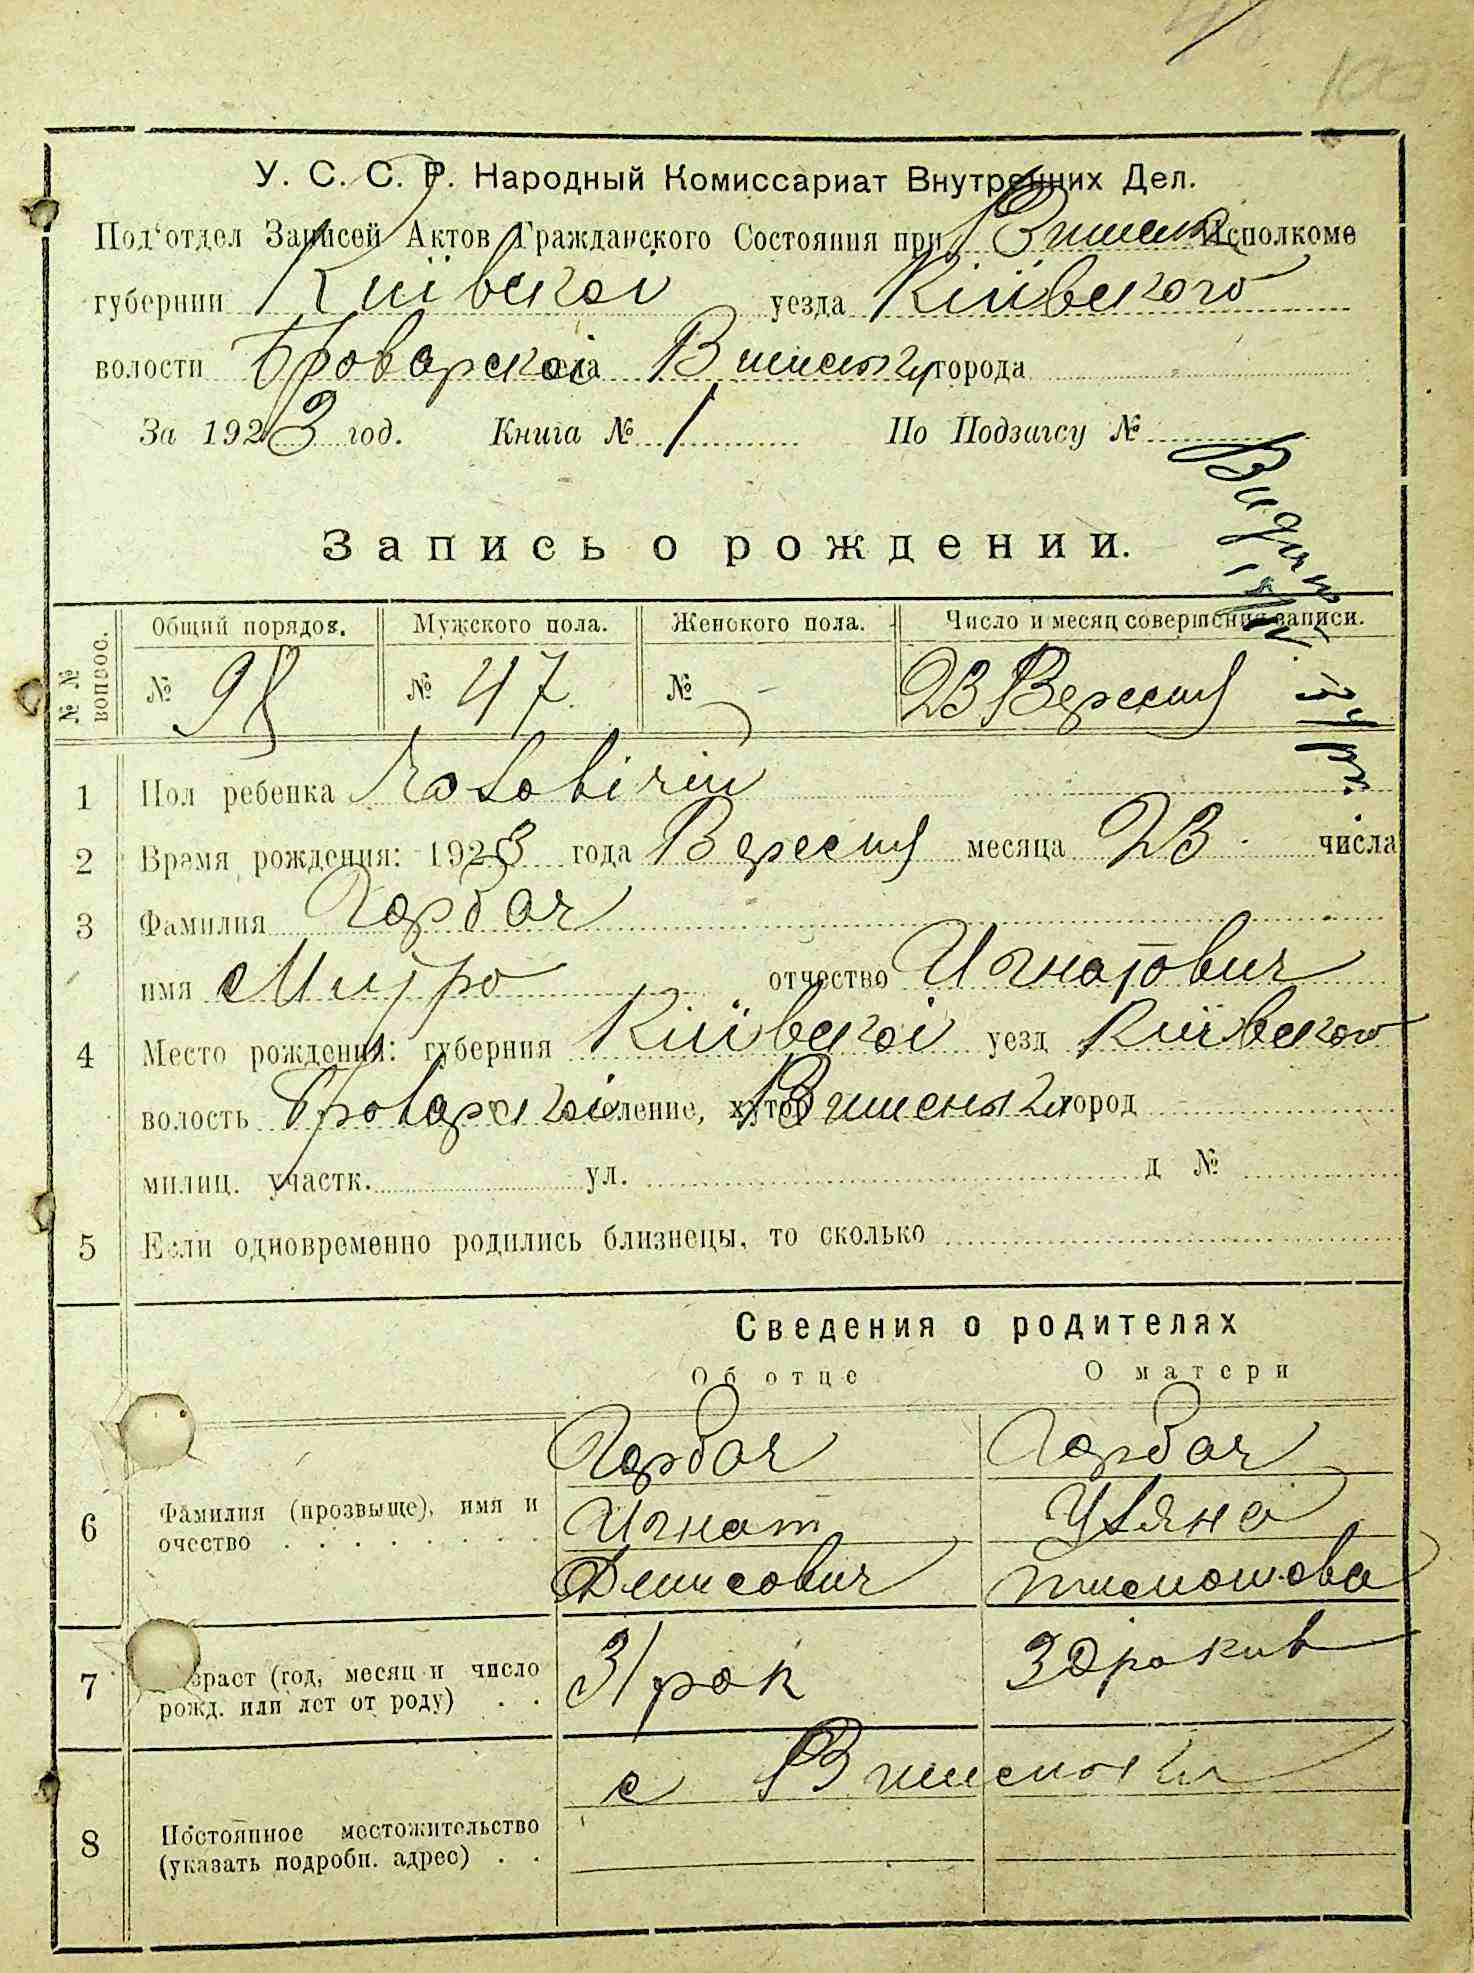 100
У. С. С. Р. Народный Комиссариат Внутренних Дел.
Под‘отдел Записей Актов Гражданского Состояния при Вишенк Исполкоме
губернии Київскоі уезда Київского
волости Броварскоі села Вишеньки города
За 1923 год. Книга № 1 По Подзагсу №
Запись о рождении.
№ № вопрос. Общий порядов. Мужского пола. Женокого пола. Число и месяц совершения записи.
№ 98 № 47 № - 23 Вересня
1 Пол ребенка Чоловічий
2 Время рождения: 1923 года Вересня месяца 23 числа
3 Фамилия Горбач
имя Митро отчество Игнатович
4 Место рождения: губерния Київскоі уезд Київского
волость Броварскоі селение, хутор Вишеньки город
милиц. участк. ул. д №
5 Если одновременно родились близнецы, то сколько
Сведения о родителях
Об отце О матери
Горбач Горбач
6 Фамилия (прозвыще), имя и Игнат Уляна
очество Денисович Тимошова
7 Возраст (год, месяц и число 31 рок 30 роков
рожд. или лет от роду)
с Вишеньки
8 Постоянное местожительство
(указать подробн. адрес)